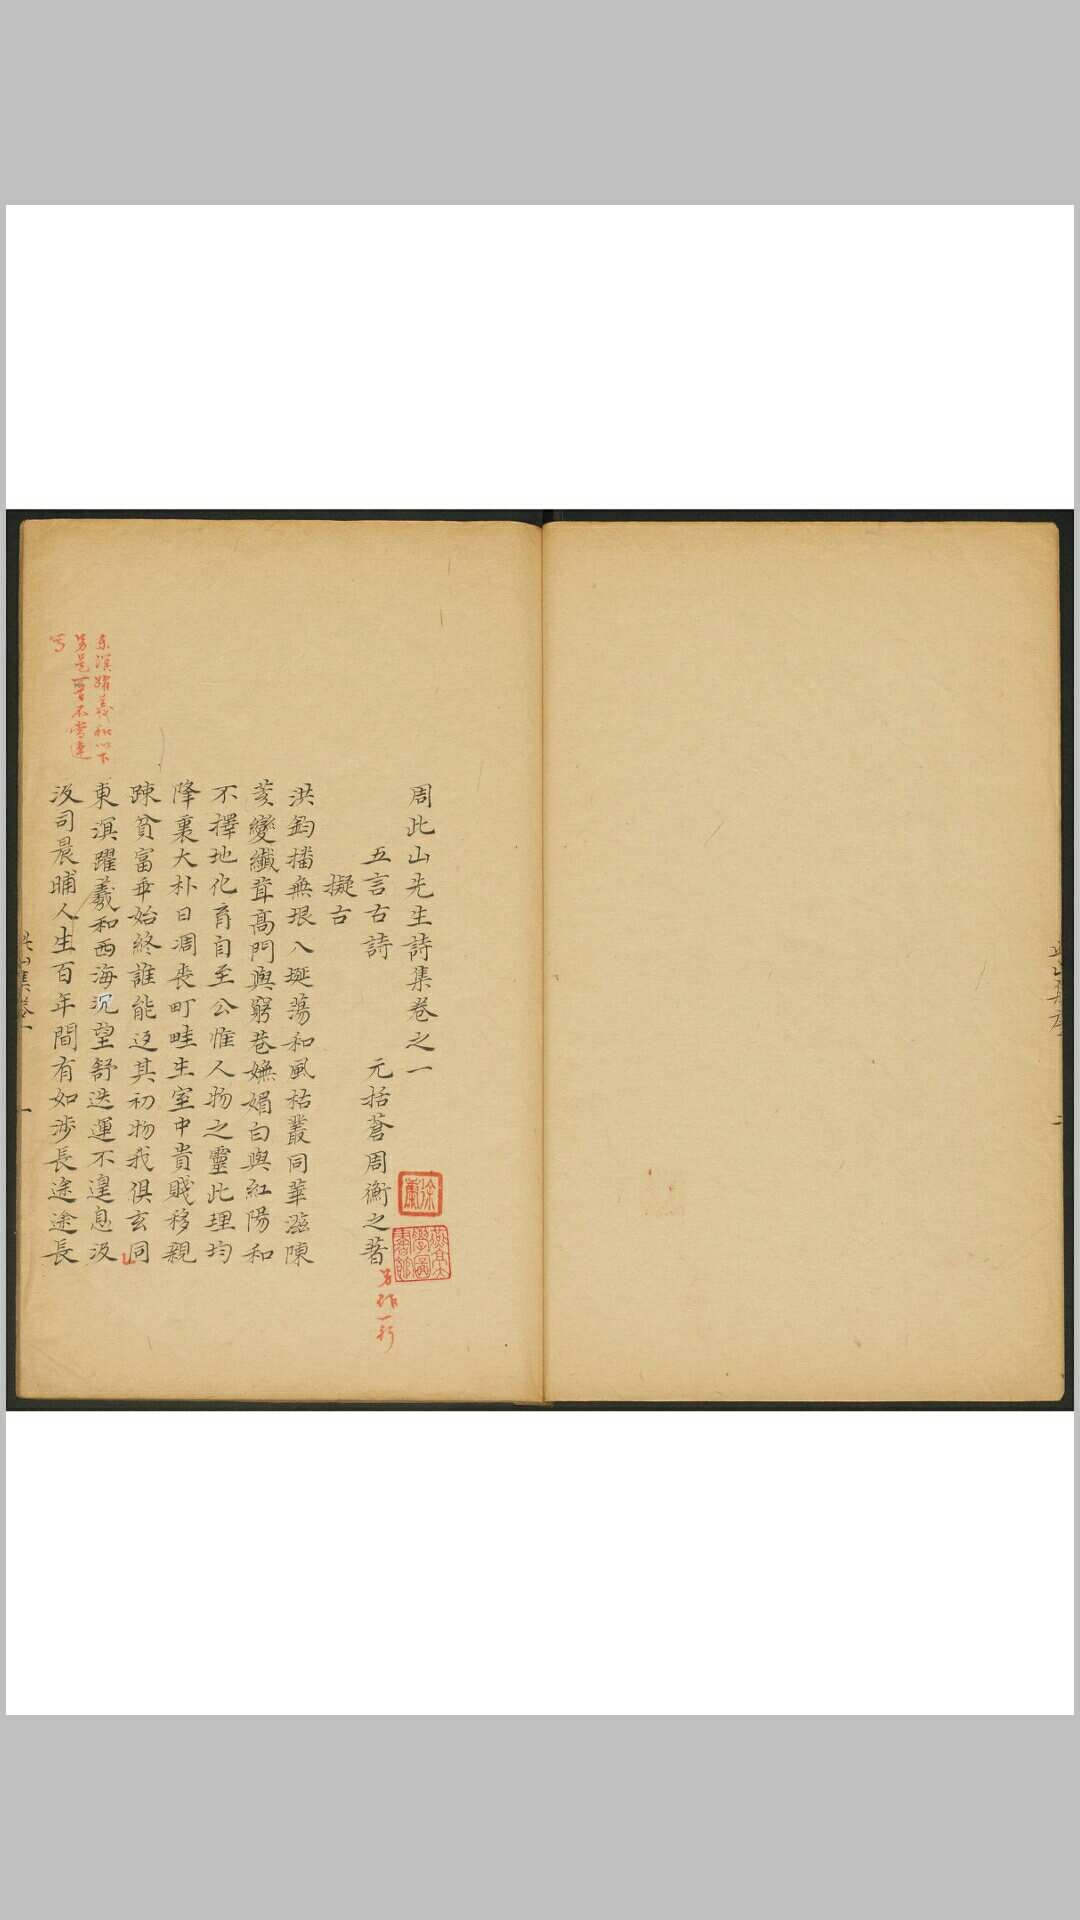 周此山先生詩集卷之一
五言古詩　元括蒼周衡之著
另作一行
擬古
洪鈞播無垠八埏蕩和風枯叢同華滋陳
荄變纖茸高門與窮巷嫵媚白與紅陽和
不擇地化育自至公惟人物之靈此理均
降衷大朴日凋喪町畦生室中貴賤移親
踈貧富乖始終誰能返其初物我俱玄同
東溟躍羲和西海沉望舒迭運不遑息汲
汲司晨晡人生百年間有如涉長途途長
东溟躍羲和以下
另是一首不當連
写
一